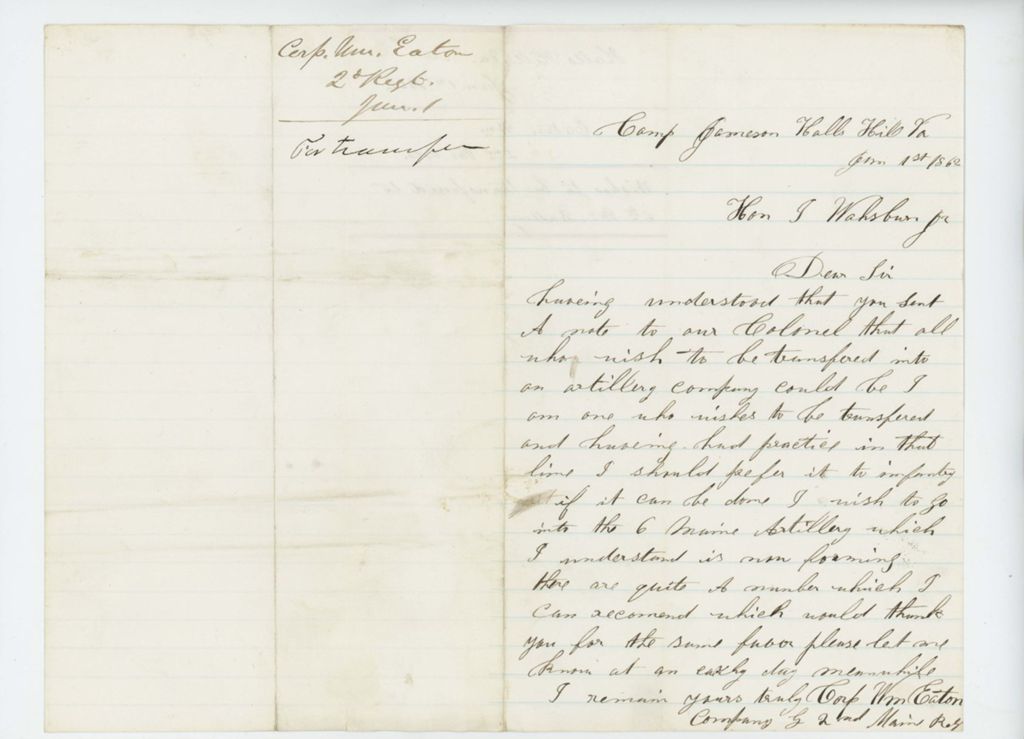 Corp. Wm. Eaton
2d Regt.
Jan. 1
For transfer
Camp Jameson Halls Hill Va
Jan 1st 1862
Hon I Wahsburn jr
Dear Sir
haveing understood that you sent
A note to our Colonel that all
who wish to be transfered into
an artillery company could be I
am one who wishes to be transfered
and haveing had practice in that
line I should prefer it to infantry
if it can be done I wish to go
into the 6 Maine Artillery which
I understand is now forming
there are quite A number which I
can recomend which would thank
you for the same favor please let me
know at an early day meanwhile
I remain yours truly Corp Wm Eaton
Company G 2nd Main Reg